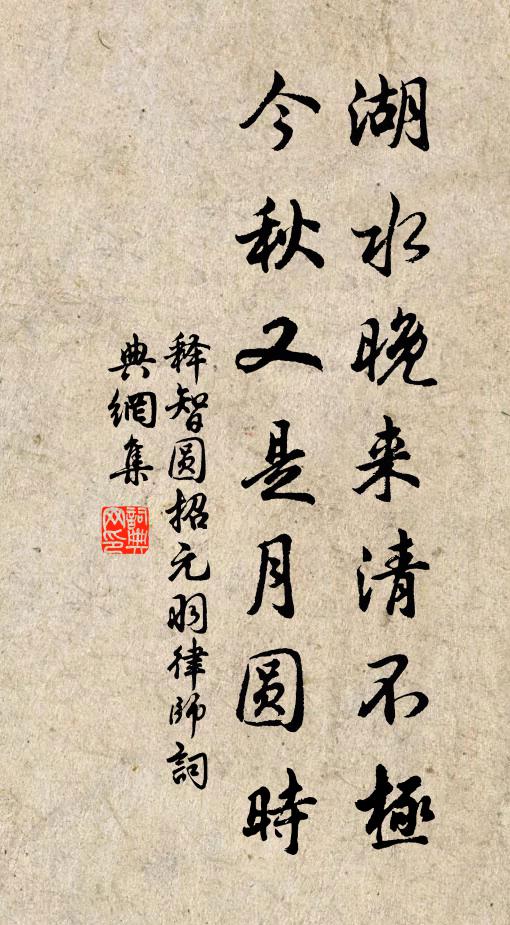 湖水晚来清不極
今秋又是月圆時
释智圆招元羽律師詞
典網集
詞典网印